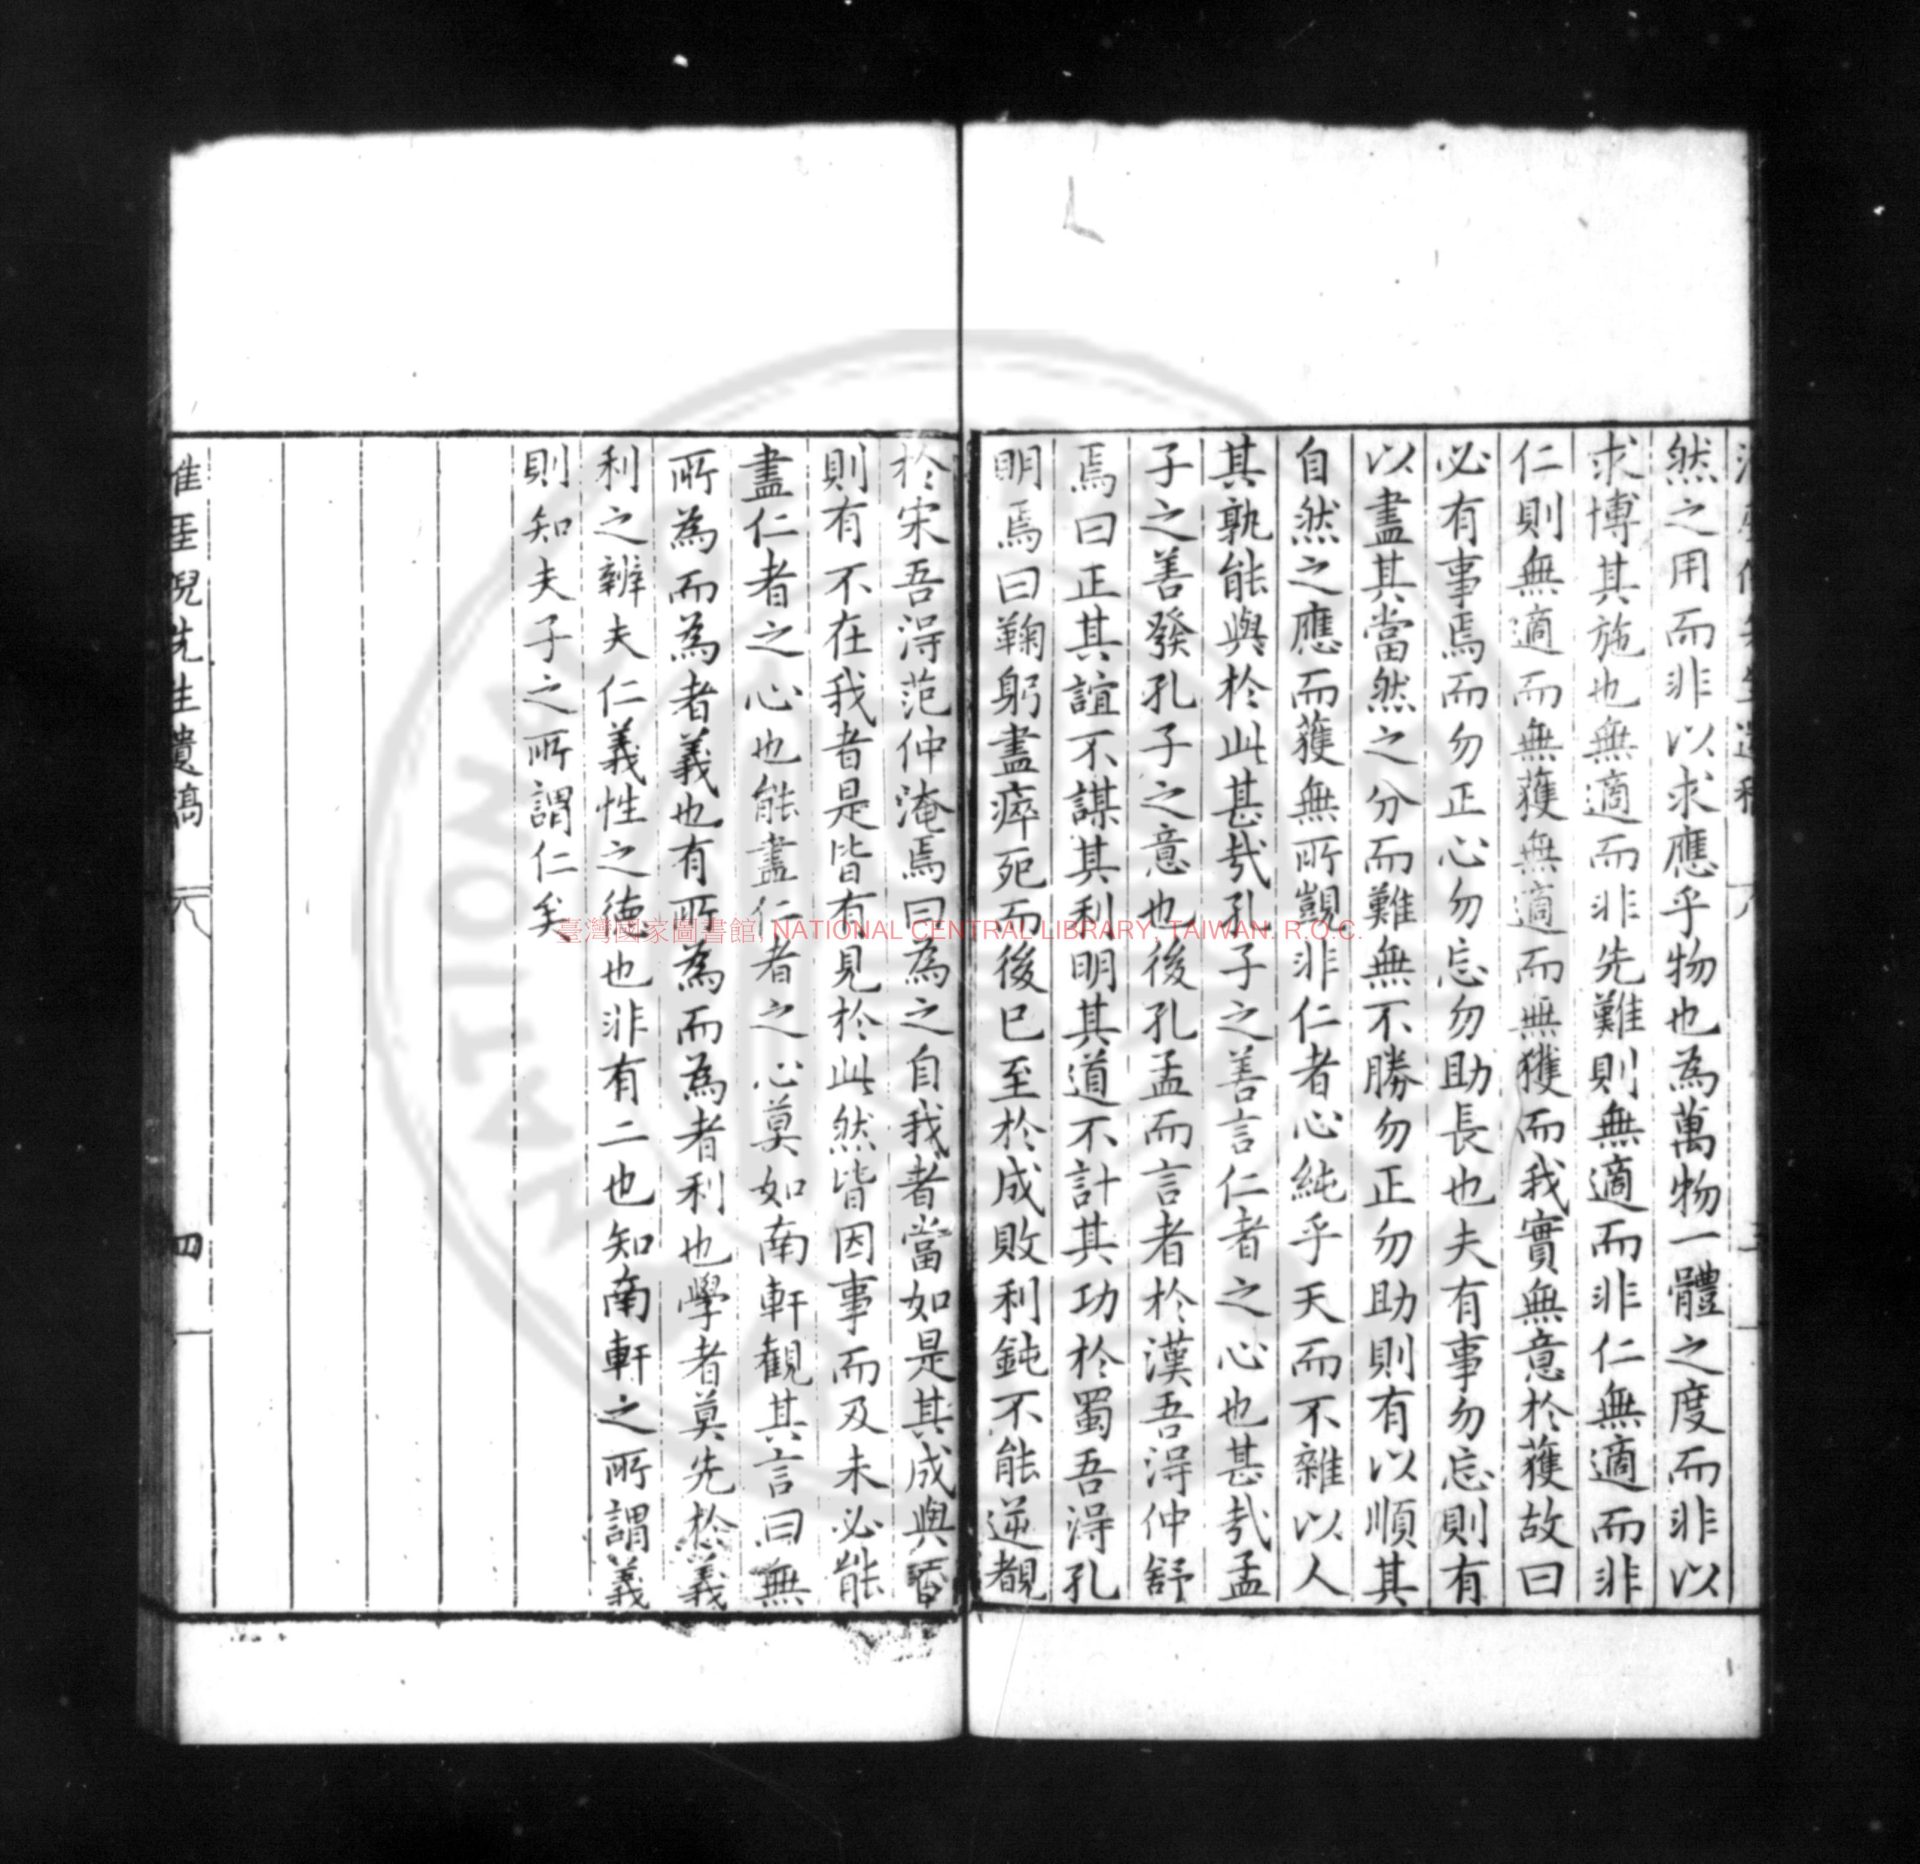 然之用而非以求應乎物也為萬物一體之度而非以
求博其施也無適而非先難則無適而非仁無適而非
仁則無適而無獲無適而無獲而我實無意於獲故曰
必有事焉而勿正心勿忘勿助長也夫有事勿忘則有
以盡其當然之分而難無不勝勿正勿助則有以順其
自然之應而獲無所覬非仁者心純乎天而不雜以人
其孰能與於此甚哉孔子之善言仁者之心也甚哉孟
子之善發孔子之意也後孔孟而言者於漢吾淂仲舒
焉曰正其誼不謀其利明其道不計其功於蜀吾淂孔
明焉曰鞠躬盡瘁死而後已至於成敗利鈍不能逆覩
於宋吾淂范仲淹焉曰為之自我者當如是其成與否
則有不在我者是皆有見於此然皆因事而及未必能
盡仁者之心也能盡仁者之心莫如南軒觀其言曰無
所為而為者義也有所為而為者利也學者莫先於義
利之辨夫仁義性之德也非有二也知南軒之所謂義
則知夫子之所謂仁矣
先生遺稿
四
臺灣國家圖書館, NATIONAL CENTRAL LIBRARY, TAIWAN. R.O.C.